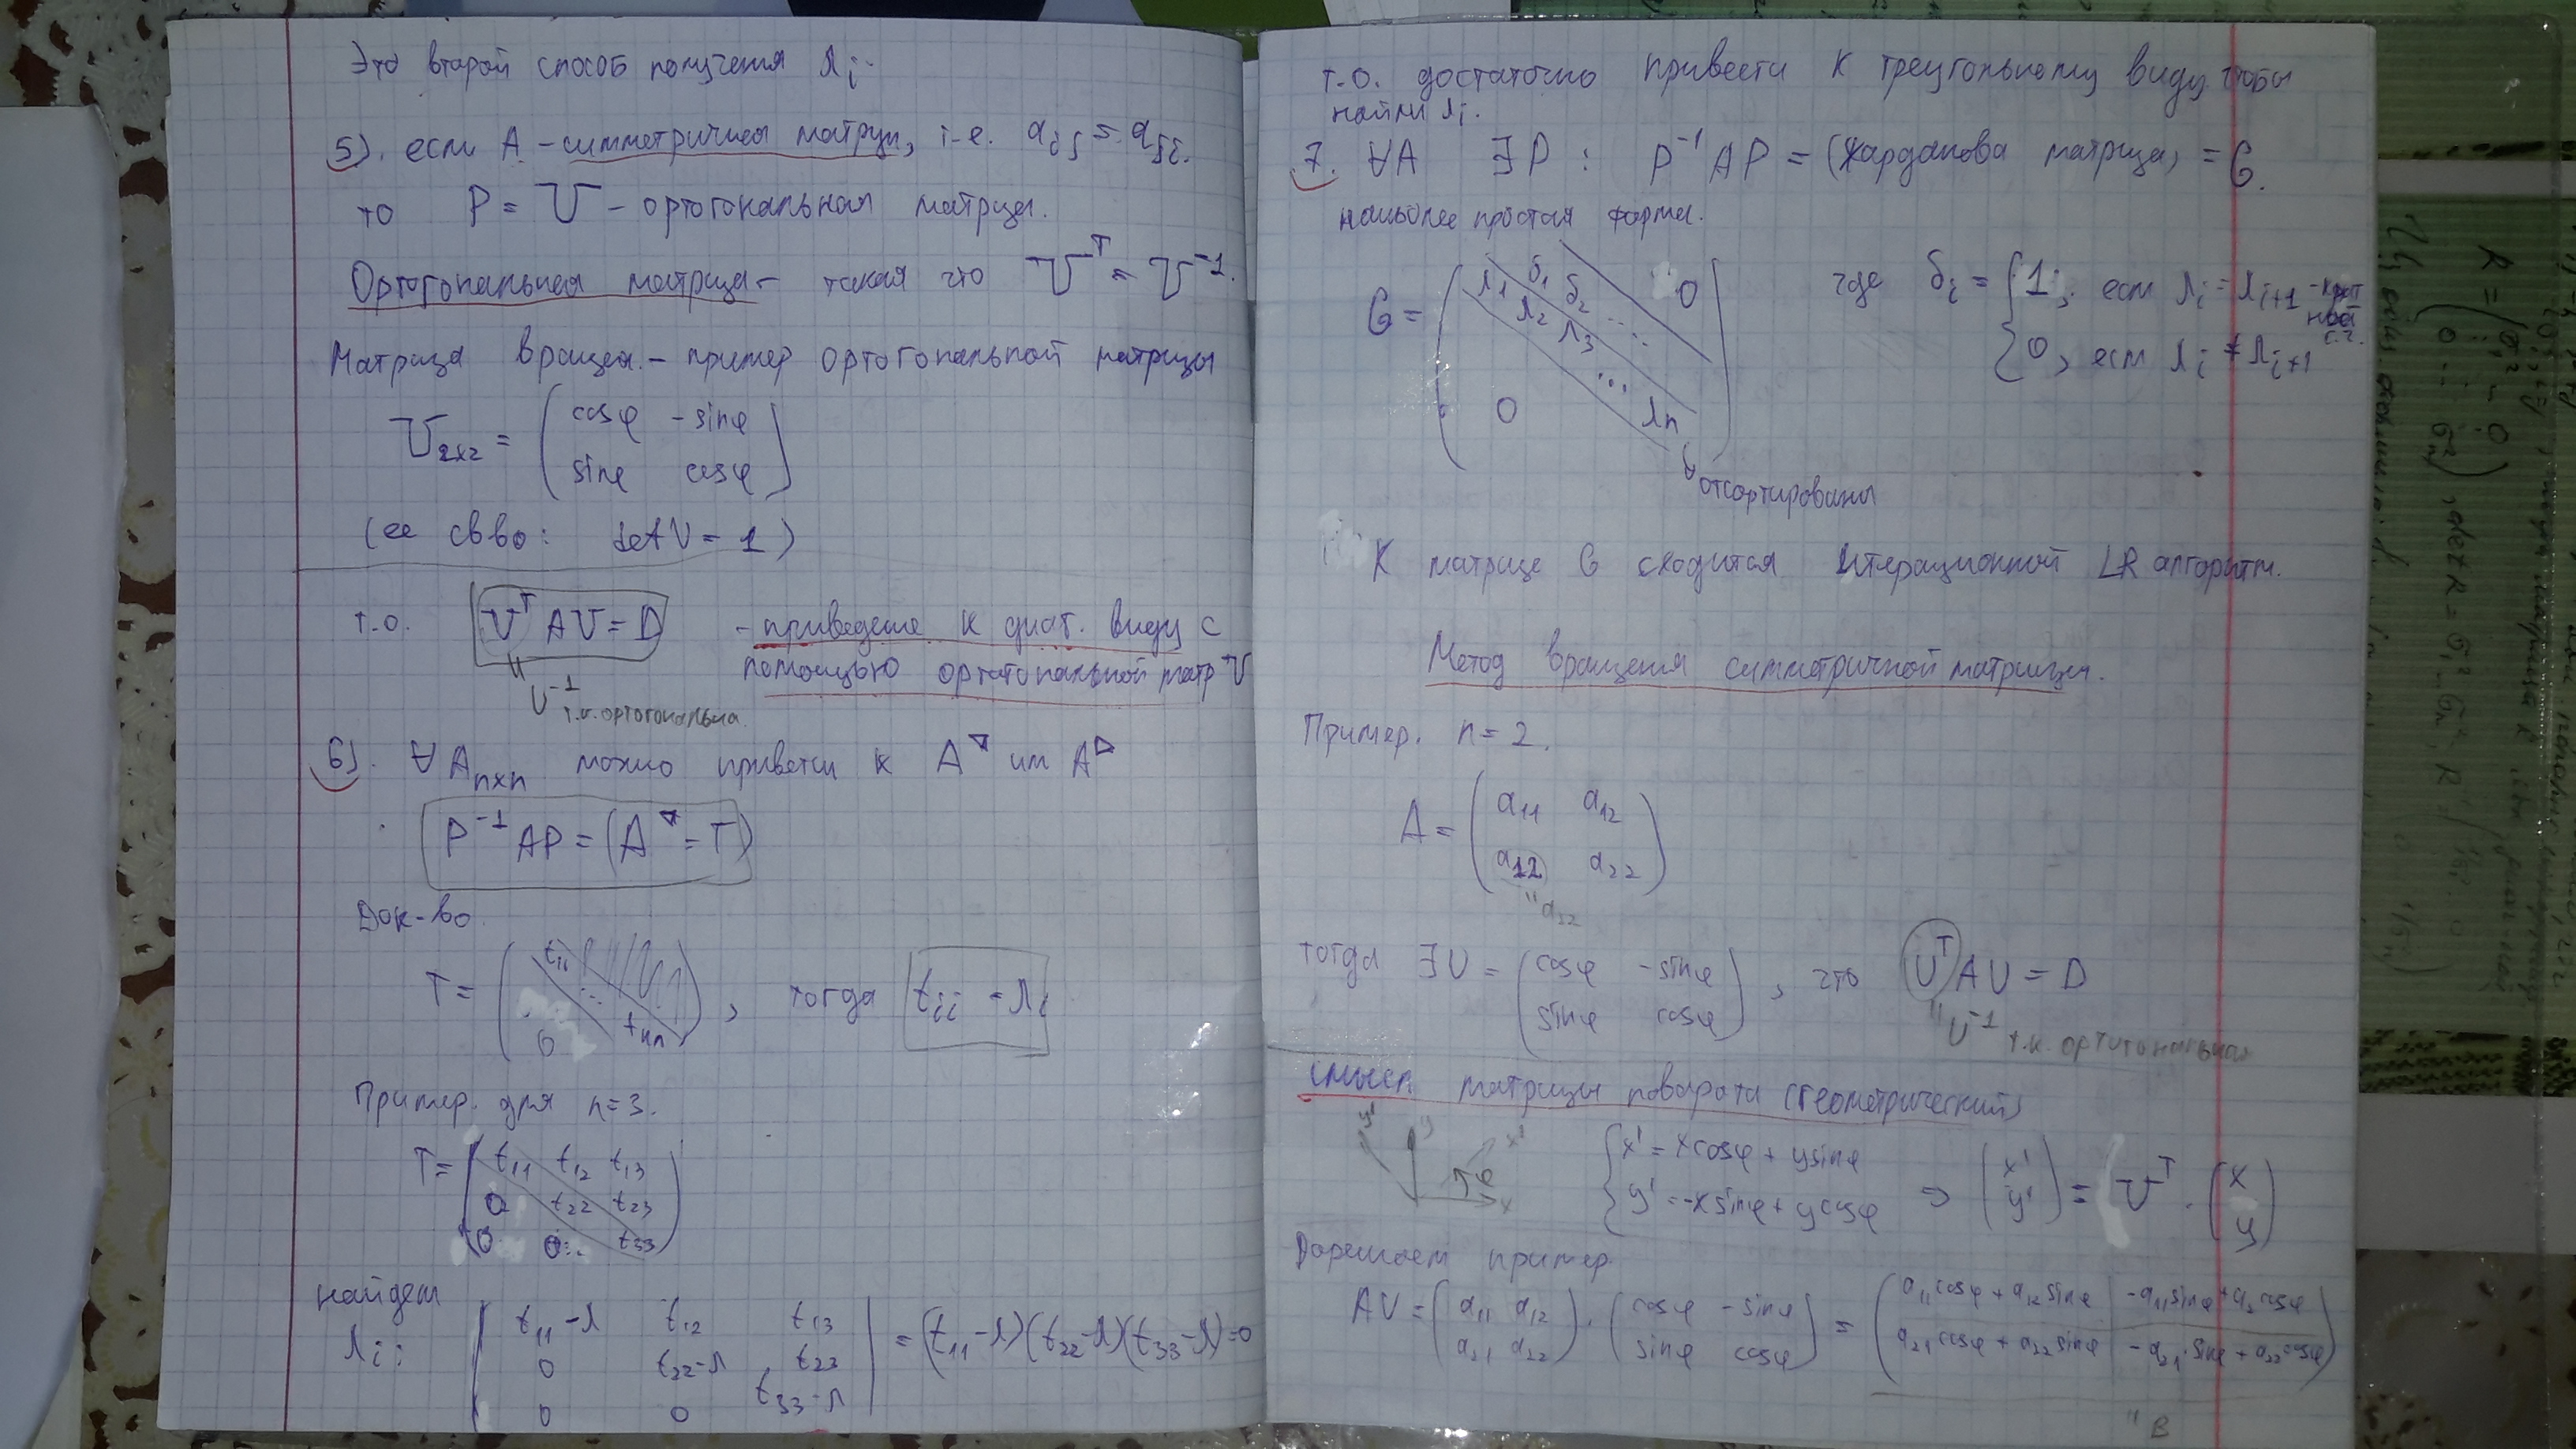 Это второй способ получения λi.
5). если A - симметричная матрица, i.e. aij = aji.
то P = U - ортогональная матрица.
Ортогональная матрица - такая что U^T = U^-1.
Матрица вращен. - пример ортогональной матрицы
U2x2 = ( cosφ -sinφ
sinφ cosφ )
(ее св-во: det U = 1)
т.о. U^T A U = D - приведение к диаг. виду с
помощью ортогональной матр U
U^-1 т.к. ортогональна.
6). ∀ Anxn можно привести к A^∇ ил A^Δ
P^-1 AP = (A^∇ = T)
Док-во
T = ( t11
0 tnn ), тогда tii = λi
Пример. для n=3.
T = ( t11 t12 t13
0 t22 t23
0 0 t33 )
Найдем
λi: | t11-λ t12 t13
0 t22-λ t23
0 0 t33-λ | = (t11-λ)(t22-λ)(t33-λ)=0
т.о. достаточно привести к треугольному виду чтобы
найти λi.
7. ∀A ∃ P : P^-1 AP = (жорданова матрица) = G.
наиболее простая форма.
G = ( λ1 δ1 0
λ2 δ2 ...
0 λ3 ...
λn ) где δi = { 1, если λi = λi+1 - крат
0, если λi ≠ λi+1
отсортированы
К матрице G сходится итерационной LR алгоритм.
Метод вращения симметричной матрицы.
Пример. n=2.
A = ( a11 a12
a12 a22 )
тогда ∃ U = ( cosφ -sinφ
sinφ cosφ ), что U^T A U = D
U^-1 т.к. ортогональна
матрицы поворота (геометрический)
{ x' = x cosφ + y sinφ
y' = -x sinφ + y cosφ ⇒ ( x'
y' ) = U^T · ( x
y )
y' y x' x φ
Дорешаем пример.
AU = ( a11 a12
a21 a22 ) · ( cosφ -sinφ
sinφ cosφ ) = ( a11 cosφ + a12 sinφ -a11 sinφ + a12 cosφ
a21 cosφ + a22 sinφ -a21 sinφ + a22 cosφ )
"B